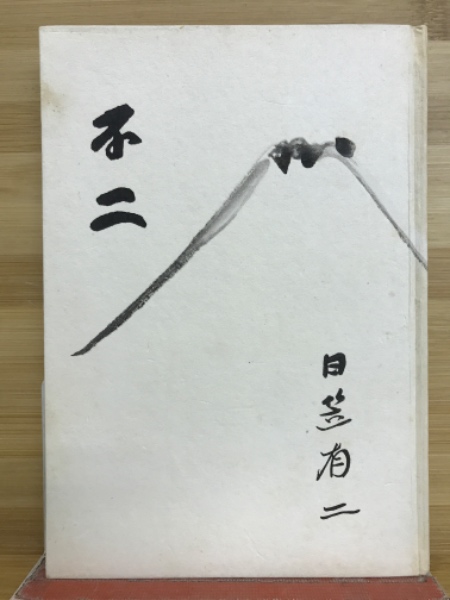 不二
日笠有二